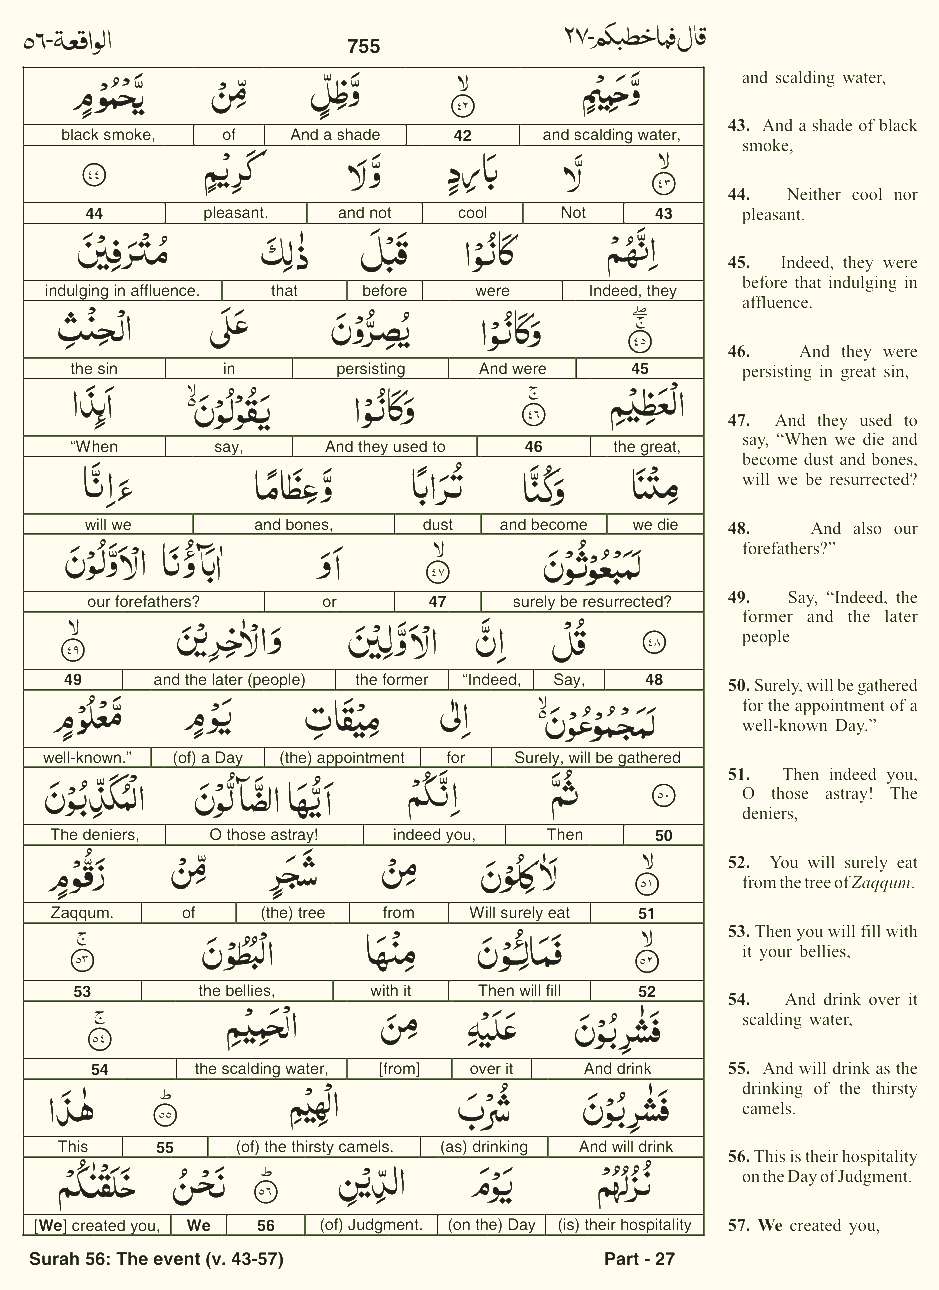 الواقعة-٥٦ 755 قال فما خطبكم-٢٧
وَّحَمِيْمٍ ۙ﴿٤٢﴾ وَّظِلٍّ مِّنْ يَّحْمُوْمٍ
black smoke, of And a shade 42 and scalding water,
ۙ﴿٤٣﴾ لَّا بَارِدٍ وَّلَا كَرِيْمٍ ﴿٤٤﴾
44 pleasant. and not cool Not 43
اِنَّهُمْ كَانُوْا قَبْلَ ذٰلِكَ مُتْرَفِيْنَ
indulging in affluence. that before were Indeed, they
﴿٤٥﴾ وَكَانُوْا يُصِرُّوْنَ عَلَى الْحِنْثِ
the sin in persisting And were 45
الْعَظِيْمِ ۚ﴿٤٦﴾ وَكَانُوْا يَقُوْلُوْنَ ۙ اَىِٕذَا
“When say, And they used to 46 the great,
مِتْنَا وَكُنَّا تُرَابًا وَّعِظَامًا ءَاِنَّا
will we and bones, dust and become we die
لَمَبْعُوْثُوْنَ ۙ﴿٤٧﴾ اَوَ اٰبَآؤُنَا الْاَوَّلُوْنَ
our forefathers? or 47 surely be resurrected?
﴿٤٨﴾ قُلْ اِنَّ الْاَوَّلِيْنَ وَالْاٰخِرِيْنَ ۙ﴿٤٩﴾
49 and the later (people) the former “Indeed, Say, 48
لَمَجْمُوْعُوْنَ ۙ اِلٰى مِيْقَاتِ يَوْمٍ مَّعْلُوْمٍ
well-known.” (of) a Day (the) appointment for Surely, will be gathered
﴿٥٠﴾ ثُمَّ اِنَّكُمْ اَيُّهَا الضَّآلُّوْنَ الْمُكَذِّبُوْنَ
The deniers, O those astray! indeed you, Then 50
ۙ﴿٥١﴾ لَاٰكِلُوْنَ مِنْ شَجَرٍ مِّنْ زَقُّوْمٍ
Zaqqum. of (the) tree from Will surely eat 51
ۙ﴿٥٢﴾ فَمَالِـُٔوْنَ مِنْهَا الْبُطُوْنَ ۚ﴿٥٣﴾
53 the bellies, with it Then will fill 52
فَشٰرِبُوْنَ عَلَيْهِ مِنَ الْحَمِيْمِ ۚ﴿٥٤﴾
54 the scalding water, [from] over it And drink
فَشٰرِبُوْنَ شُرْبَ الْهِيْمِ ؕ﴿٥٥﴾ هٰذَا
This 55 (of) the thirsty camels. (as) drinking And will drink
نُزُلُهُمْ يَوْمَ الدِّيْنِ ؕ﴿٥٦﴾ نَحْنُ خَلَقْنٰكُمْ
[We] created you, We 56 (of) Judgment. (on the) Day (is) their hospitality
Surah 56: The event (v. 43-57) Part - 27
and scalding water,
43. And a shade of black
smoke,
44. Neither cool nor
pleasant.
45. Indeed, they were
before that indulging in
affluence.
46. And they were
persisting in great sin,
47. And they used to
say, “When we die and
become dust and bones,
will we be resurrected?
48. And also our
forefathers?”
49. Say, “Indeed, the
former and the later
people
50. Surely, will be gathered
for the appointment of a
well-known Day.”
51. Then indeed you,
O those astray! The
deniers,
52. You will surely eat
from the tree of Zaqqum.
53. Then you will fill with
it your bellies,
54. And drink over it
scalding water,
55. And will drink as the
drinking of the thirsty
camels.
56. This is their hospitality
on the Day of Judgment.
57. We created you,